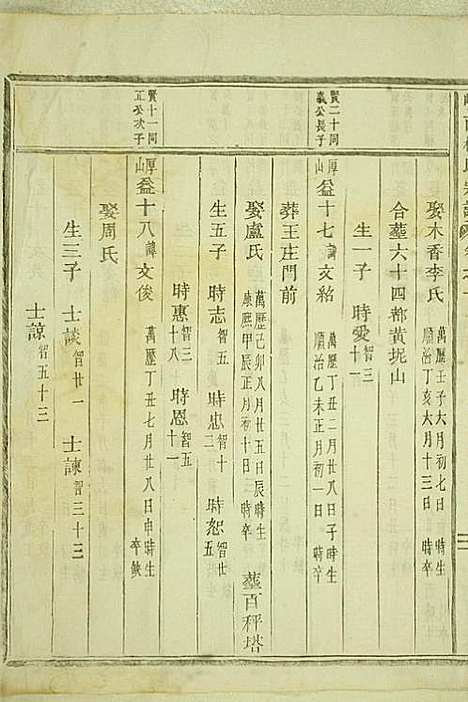 娶木香李氏 萬歷壬子六月初七日 時生 順治丁亥六月十三日 時卒
合墓六十四都黃坭山
生一子 時愛智三十一
賢二十同義公長子
厚山 益十七諱文紹 萬歷丁丑二月廿八日 時生 順治乙未正月初一日 時卒
葬王庄門前
娶盧氏 萬歷己卯八月廿五日辰時生 康熙甲辰正月初十日 時卒 墓百秤塔
生五子 時志智五 時忠智十二 時恕智世五
時惠智三十八 時恩智五十一
賢十一同正公次子
厚山 益十八諱文俊 萬歷丁丑七月廿八日申時生 卒缺
娶周氏
生三子 士談智廿一 士諫智三十三
士諒智五十三